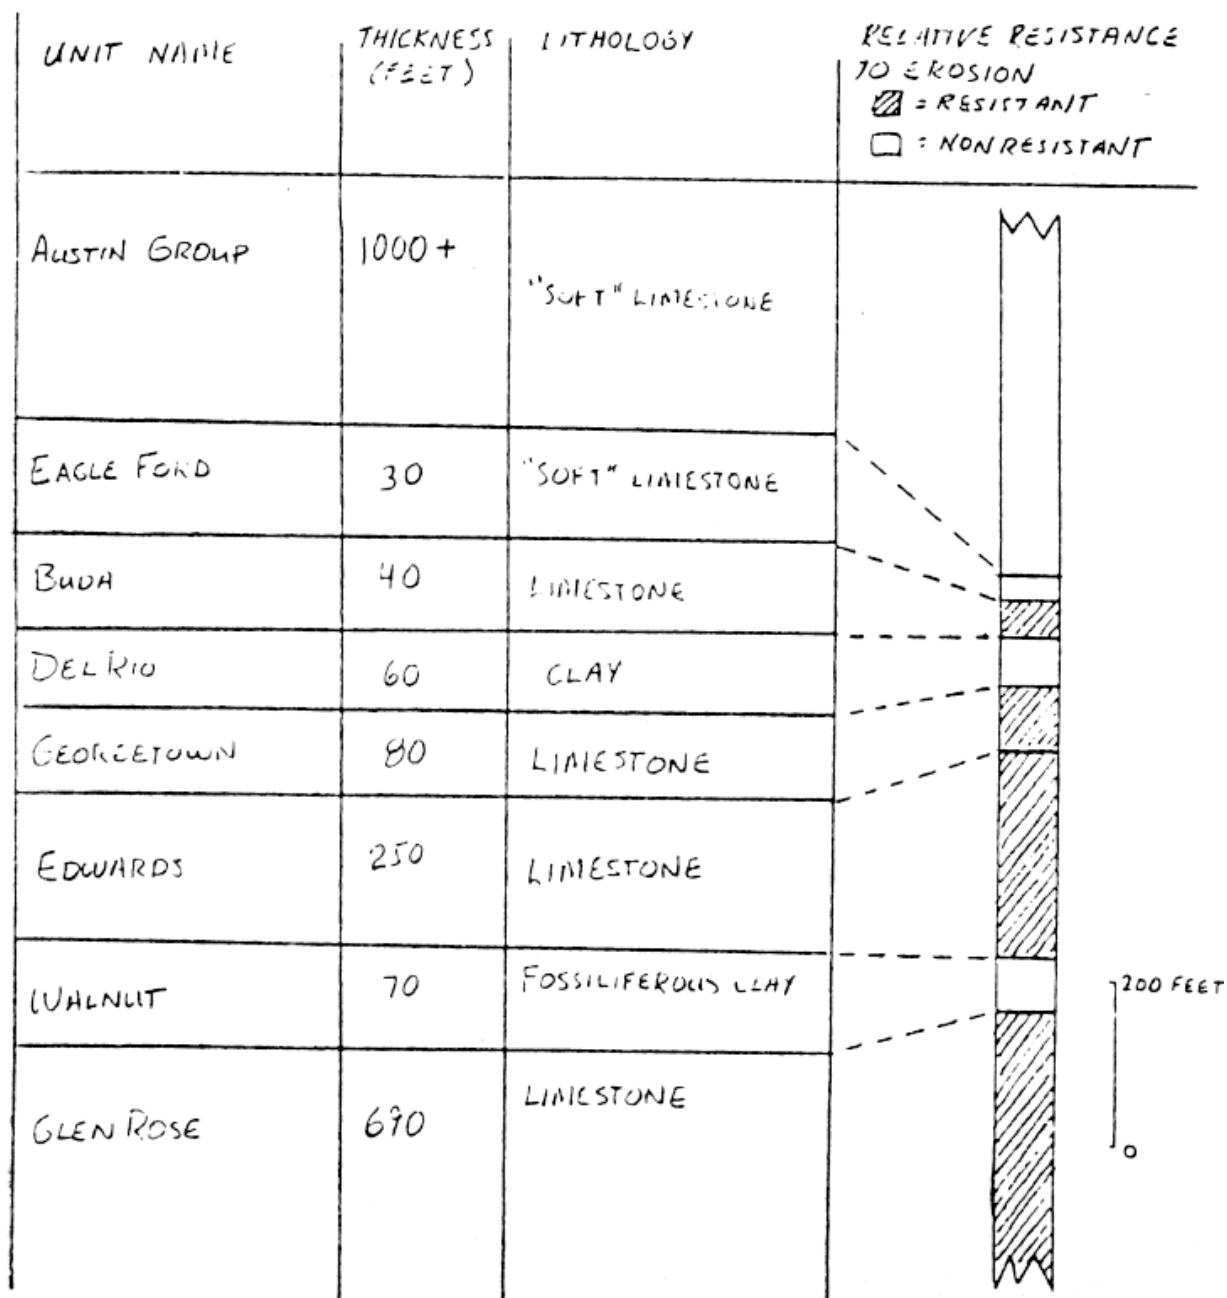 UNIT NAME
THICKNESS
(FEET)
LITHOLOGY
RELATIVE RESISTANCE
TO EROSION
= RESISTANT
= NONRESISTANT
AUSTIN GROUP
1000+
"SOFT" LIMESTONE
EAGLE FORD
30
"SOFT" LIMESTONE
BUDA
40
LIMESTONE
DEL RIO
60
CLAY
GEORGETOWN
80
LIMESTONE
EDWARDS
250
LIMESTONE
WALNUT
70
FOSSILIFEROUS CLAY
GLEN ROSE
690
LIMESTONE
200 FEET
0